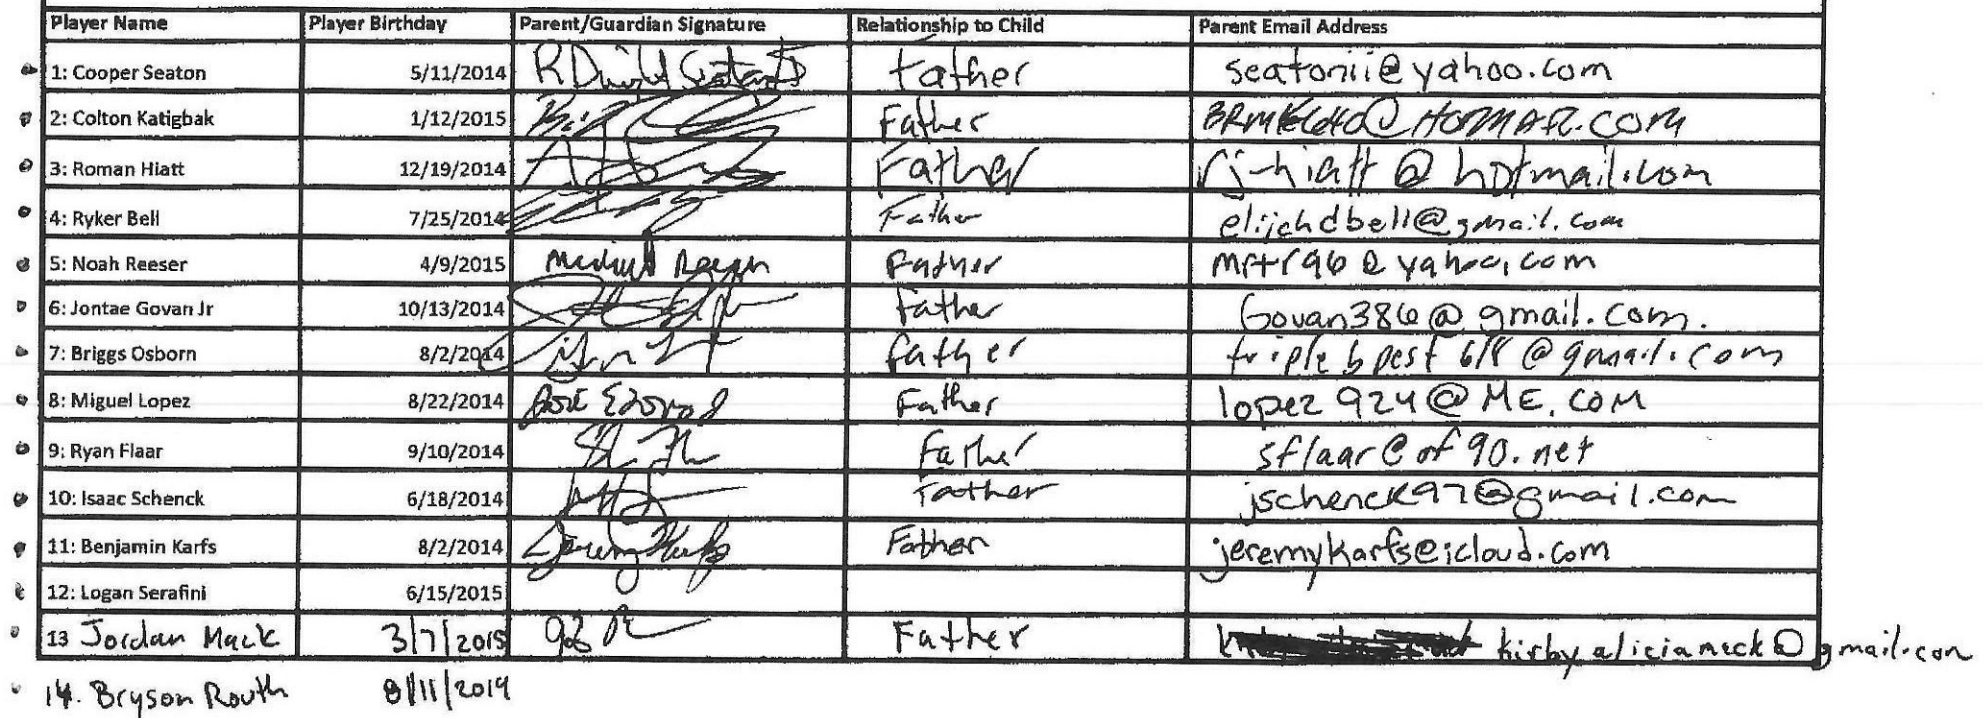 Player Name Player Birthday Parent/Guardian Signature Relationship to Child Parent Email Address
1: Cooper Seaton 5/11/2014 Father seatonii@yahoo.com
2: Colton Katigbak 1/12/2015 Father
3: Roman Hiatt 12/19/2014 Father rj-hiatt@hotmail.com
4: Ryker Bell 7/25/2014 Father elijahdbell@gmail.com
5: Noah Reeser 4/9/2015 Father mrtr96@yahoo.com
6: Jontae Govan Jr 10/13/2014 Father Govan386@gmail.com.
7: Briggs Osborn 8/2/2014 father
8: Miguel Lopez 8/22/2014 Father lopez924@ME.COM
9: Ryan Flaar 9/10/2014 Father sflaar@of90.net
10: Isaac Schenck 6/18/2014 Father jschenck97@gmail.com
11: Benjamin Karfs 8/2/2014 Jeremy Karfs Father jeremykarfs@icloud.com
12: Logan Serafini 6/15/2015
13 Jordan Mack 3/7/2015 Father kirbyaliciamack@gmail.com
14. Bryson Routh 8/11/2014